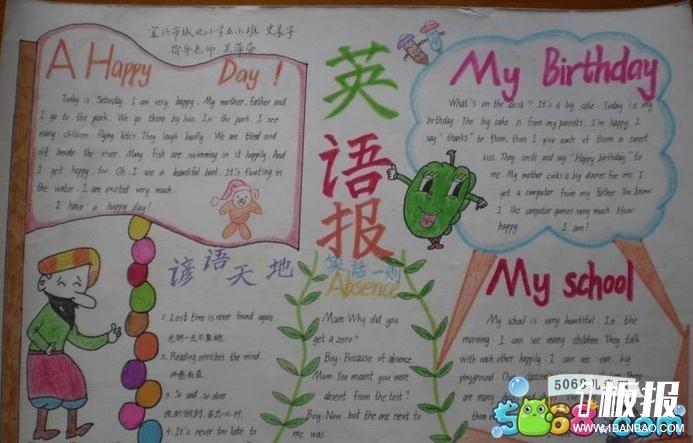 宜兴市城北小学五
指导老师
A Happy Day!
Today is Saturday. I am very happy. My mother, father and
I go to the park. We go there by bus. In the park. I see
many children flying kites. They laugh loudly. We are tired and
sit beside the river. Many fish are swimming in it happily. And
I get happy, too. Oh, I see a beautiful boat. It's floating in
the water. I am excited very much.
I have a happy day!
英语报
My Birthday
What's on the desk? It's a big cake. Today is my
birthday. The big cake is from my parents. I'm happy. I
say "thanks" to them, then I give each of them a sweet
kiss. They smile and say "Happy birthday" to
me. My mother cooks a big dinner for me. I
get a computer from my father. You know
I like computer games very much. How
happy I am!
谚语天地
1. Lost time is never found again.
2. Reading enriches the mind.
开卷有益
3. So said, so done.
4. It's never too late to
笑话一则
Absence
Mum: Why did you
get a zero?
Boy: Because of absence.
Mum: You meant you were
absent from the test?
Boy: Now, but the one next to
me was.
My school
My school is very beautiful. In the
morning. I can see many children. They talk
with each other happily. I can see our big
playground. Our
They are many
5068儿
板报
www.1BANBAO.COM